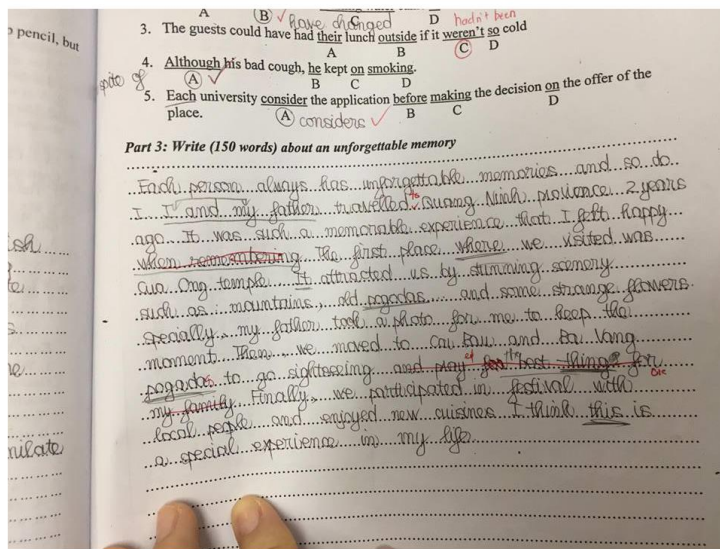 A B ✓ have changed C D hadn't been
pencil, but
3. The guests could have had their lunch outside if it weren't so cold
A B C D
4. Although his bad cough, he kept on smoking.
spite of A ✓ B C D
5. Each university consider the application before making the decision on the offer of the
place. A considers ✓ B C D
Part 3: Write (150 words) about an unforgettable memory
Each person always has unforgettable memories and so do
I. I and my father travelled to Quang Ninh provience 2 years
ago. It was such a memorable experience that I felt happy
when remembering. The first place where we visited was
Cua Ong temple. It attracted us by stunning scenery
such as: mountains, old pogodas... and some strange flowers.
Specially, my father took a photo for me to keep the
moment. Then, we moved to Cai Bau and Ba Vang
pogodas to go sightseeing and pray the best things for
my family. Finally, we participated in festival with
local people and enjoyed new cuisines. I think this is
a special experience in my life.
ish
te
ne
nulate